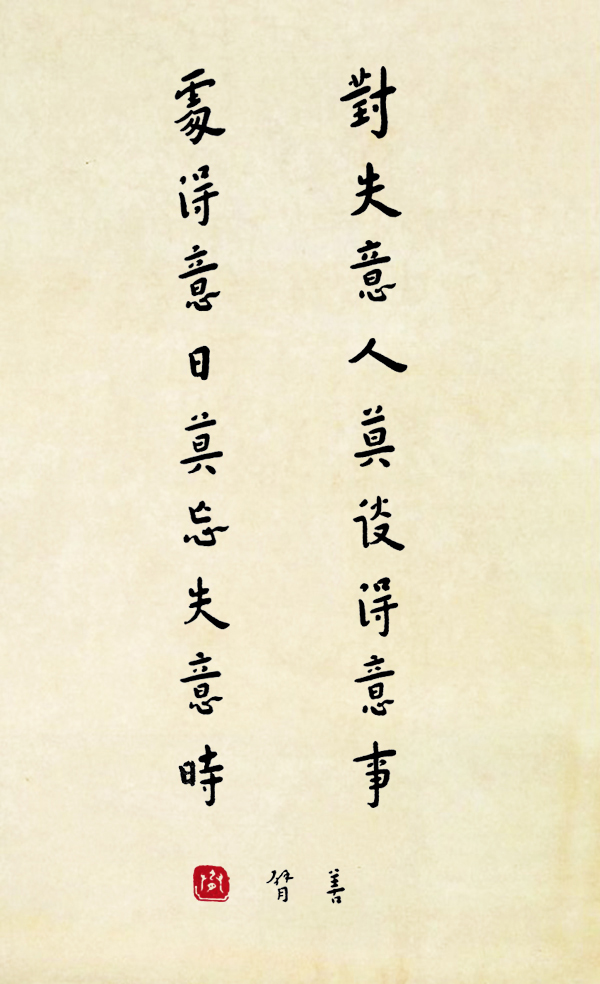 對失意人莫談得意事
處得意日莫忘失意時
善